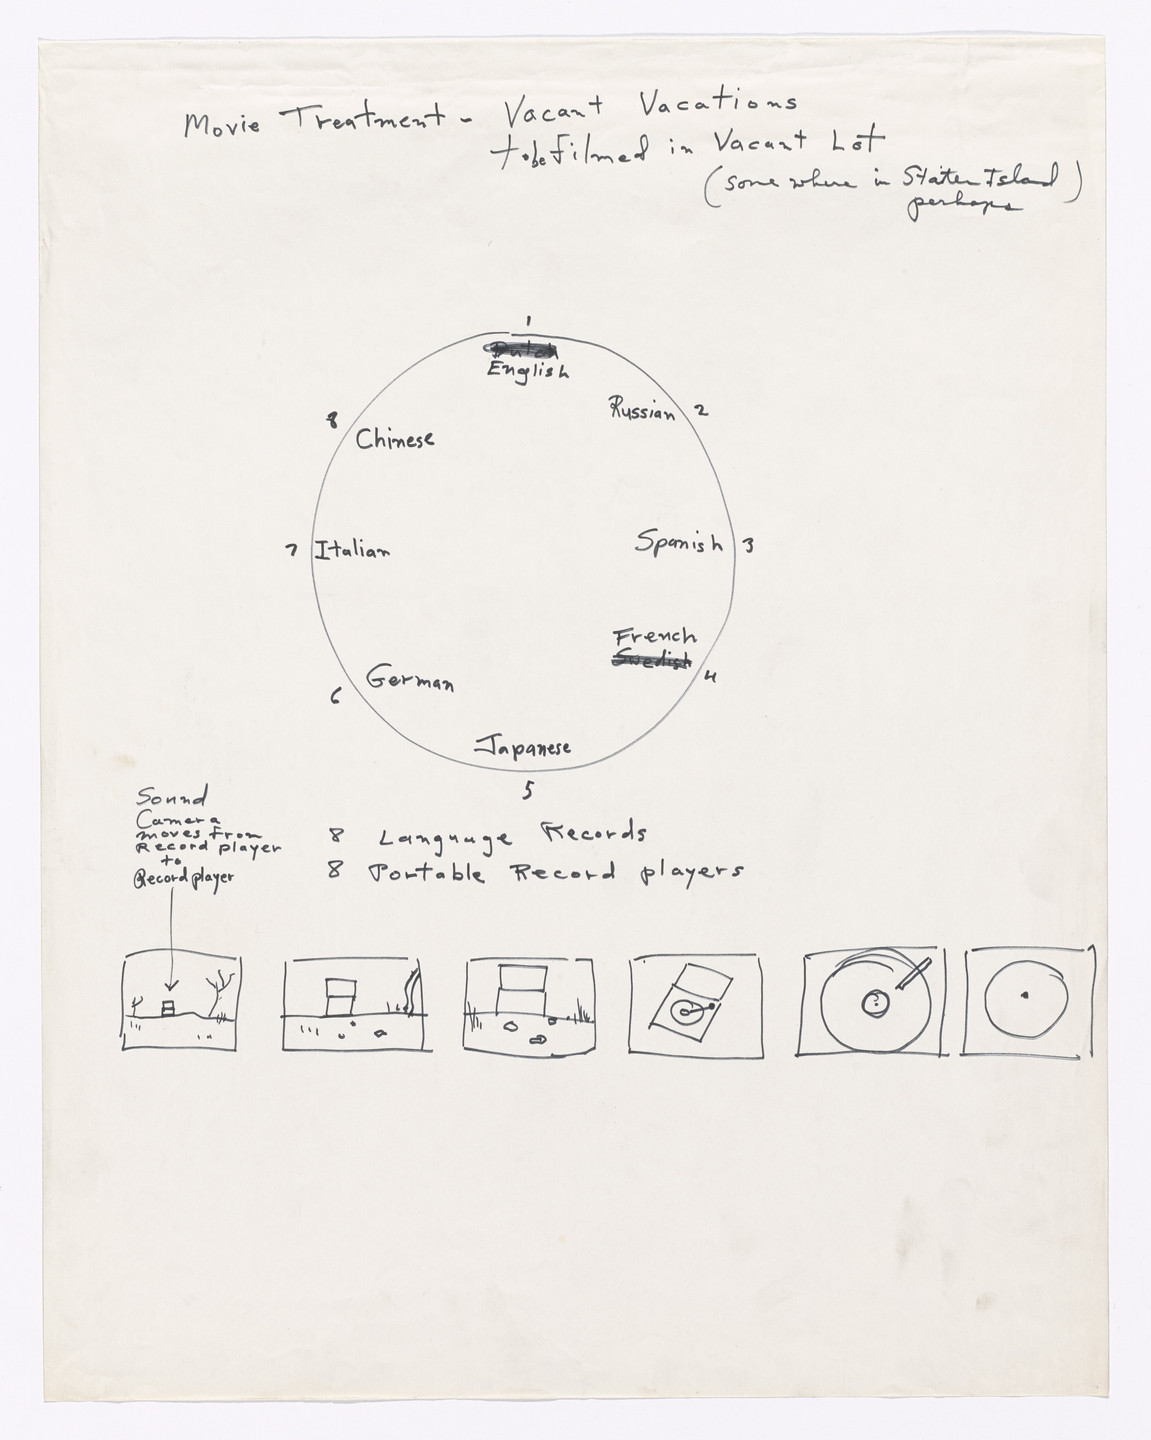 Movie Treatment - Vacant Vacations
to be filmed in Vacant Lot
(some where in Staten Island)
perhaps
1
Dutch
English
Russian 2
8
Chinese
Spanish 3
7 Italian
French
Swedish
4
German
6
Japanese
5
Sound
Camera
moves from
Record player
to
Record player
8 Language Records
8 Portable Record players
?